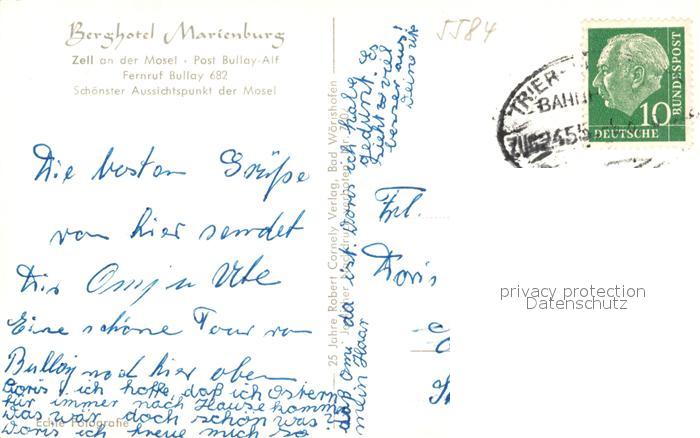 Berghotel Marienburg
Zell an der Mosel · Post Bullay-Alf
Fernruf Bullay 682
Schönster Aussichtspunkt der Mosel
Die besten Grüße
von hier sendet
Dir Omi u Ute
Eine schöne Tour von
Bullay nach hier oben
Doris, ich hoffe, daß ich Ostern
für immer nach Hause komme
das wär doch schön was?
Doris ich freue mich so
Echte Fotografie
daß Omi da ist. Doris ich habe
mein Haar
gedunt. Es
sieht so viel
besser aus!
Deine Ute
25 Jahre Robert Cornely Verlag, Bad Wörishofen
5584
Frl.
Doris
TRIER
BAHN
ZUG 2455
10
DEUTSCHE
BUNDESPOST
privacy protection
Datenschutz